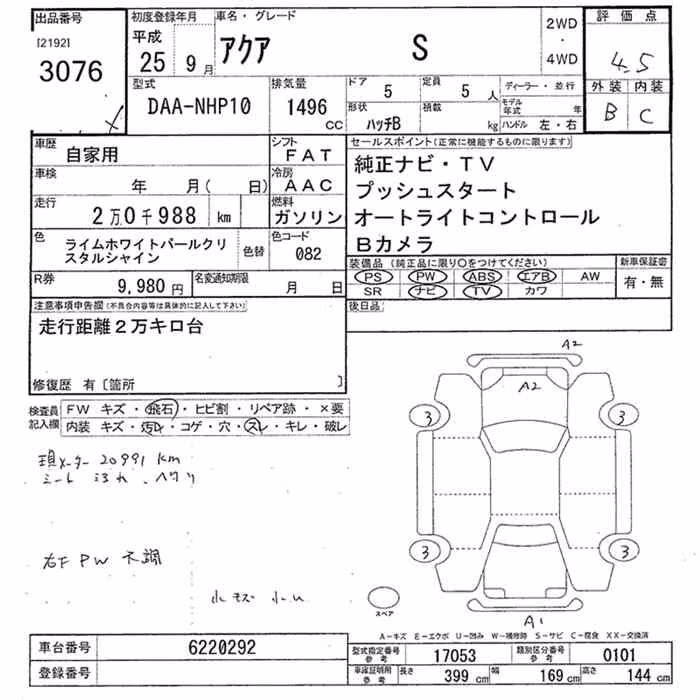 出品番号 初度登録年月 車名・グレード 2WD ・ 4WD 評価点
[2192] 3076 平成 25 9月 アクア S 4.5
外装 内装
B C
型式 DAA-NHP10 排気量 1496 CC
ドア 5 定員 5 人 ディーラー・並行
形状 ハッチB 積載 kg モデル年式 年
ハンドル 左・右
車歴 自家用 シフト FAT
車検 年 月( 日) 冷房 AAC
走行 2万0千988 km 燃料 ガソリン
色 ライムホワイトパールクリスタルシャイン 色替 色コード 082
R券 9,980円 名変通知期限 月 日
セールスポイント(正常に機能するものに限ります)
純正ナビ・TV
プッシュスタート
オートライトコントロール
Bカメラ
装備品 (純正品に限り○をつけてください) 新車保証書
PS PW ABS エアB AW 有・無
SR ナビ TV カワ
後日品
注意事項申告欄(不具合内容等は具体的に記入して下さい)
走行距離2万キロ台
修復歴 有〔箇所 〕
検査員記入欄 FW キズ・飛石・ヒビ割・リペア跡・×要
内装 キズ・汚れ・コゲ・穴・スレ・キレ・破レ
現メーター 20991 km
シート ヨゴレ
右F PW 不調
小キズ 小U
A2
A2
3 3
3 3
スペア
A1
A-キズ E-エクボ U-凹み W-補修跡 S-サビ C-腐食 XX-交換済
車台番号 6220292
登録番号
型式指定番号 参考 17053 類別区分番号 参考 0101
車庫証明用 参考 長さ 399 cm 幅 169 cm 高さ 144 cm